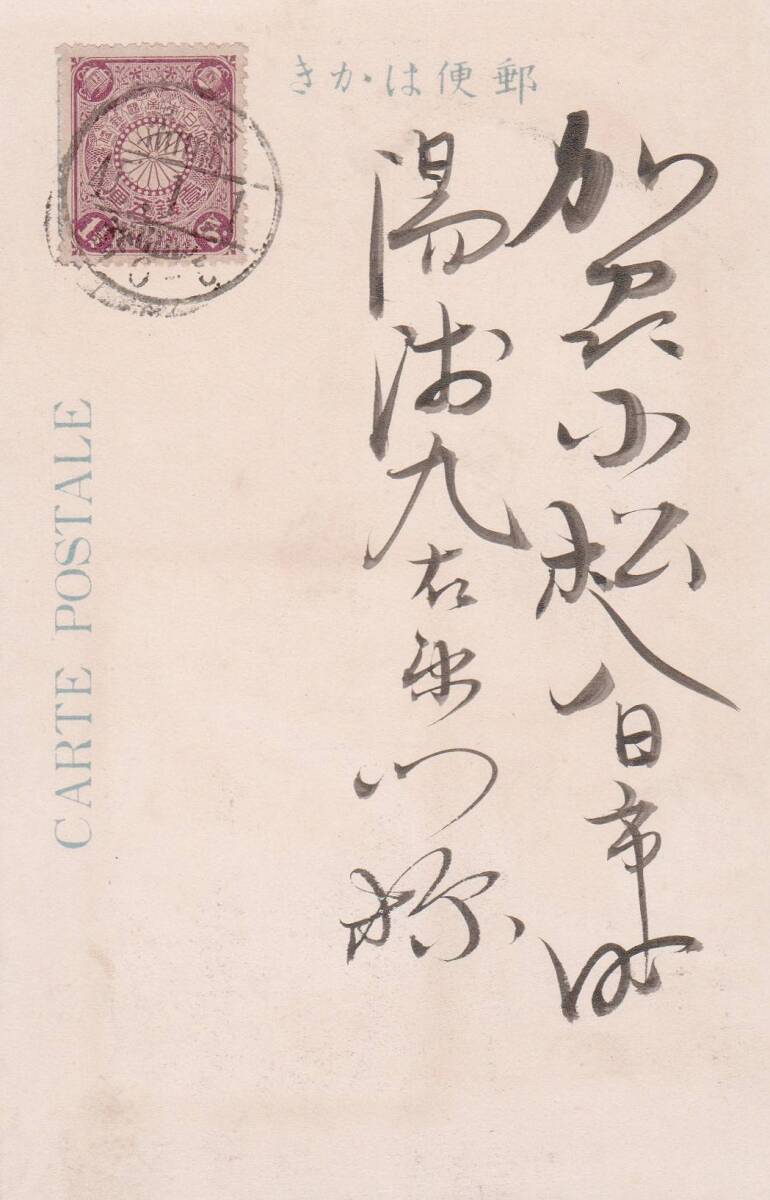 郵便はかき
加賀小松八日市町
湯浅九右衛門様
CARTE POSTALE